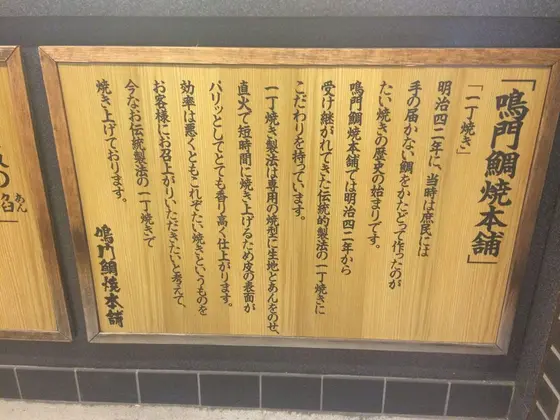 「鳴門鯛焼本舗」
「一丁焼き」
明治四二年に、当時は庶民には
手の届かない鯛をかたどって作ったのが
たい焼きの歴史の始まりです。
鳴門鯛焼本舗では明治四二年から
受け継がれてきた伝統的製法の一丁焼きに
こだわりを持っています。
一丁焼き製法は専用の焼型に生地とあんをのせ、
直火で短時間に焼き上げるため皮の表面が
パリッとしてとても香り高く仕上がります。
効率は悪くともこれぞたい焼きというものを
お客様にお召上がりいただきたいと考えて、
今なお伝統製法の一丁焼きで
焼き上げております。
鳴門鯛焼本舗
の
沼
あん